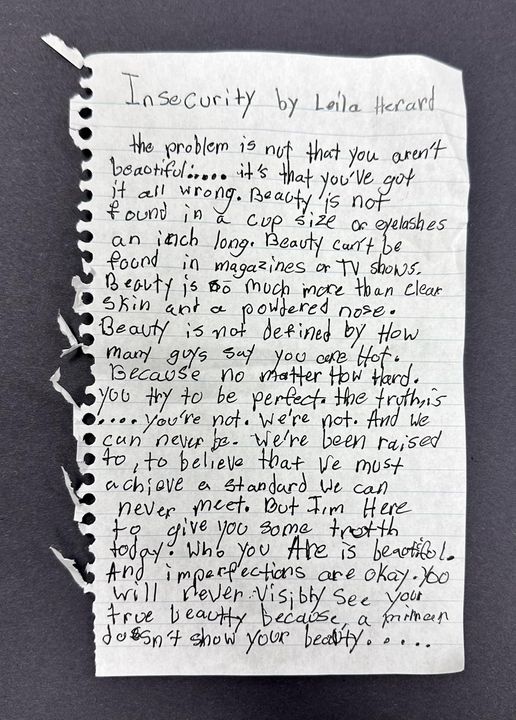 Insecurity by Leila Herard
the problem is not that you aren't
beautiful..... it's that you've got
it all wrong. Beauty is not
found in a cup size or eyelashes
an inch long. Beauty can't be
found in magazines or TV shows.
Beauty is so much more than clear
skin and a powdered nose.
Beauty is not defined by How
many guys say you are Hot.
Because no matter How Hard.
you try to be perfect. the truth is
.... you're not. We're not. And we
can never be. We're been raised
to, to believe that we must
achieve a standard we can
never meet. But I'm Here
to give you some truth
today. Who you Are is beautiful.
And imperfections are okay. You
will never visibly see your
true beauty because, a
doesn't show your beauty.....